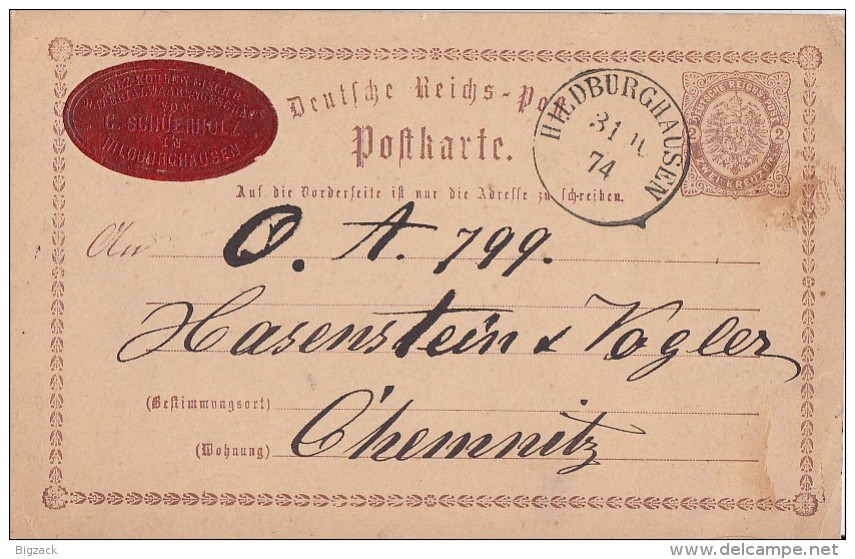 VON
C. SCHÜERHOLZ
IN
HILDBURGHAUSEN
Deutsche Reichs-Post
Postkarte.
HILDBURGHAUSEN
31
74
DEUTSCHE REICHSPOST
2 2
ZWEI KREUZER
Auf die Vorderseite ist nur die Adresse zu schreiben.
An O. A. 799.
Hasenstein & Vogler
(Bestimmungsort)
(Wohnung) Chemnitz
Bigzack
delcampe.net